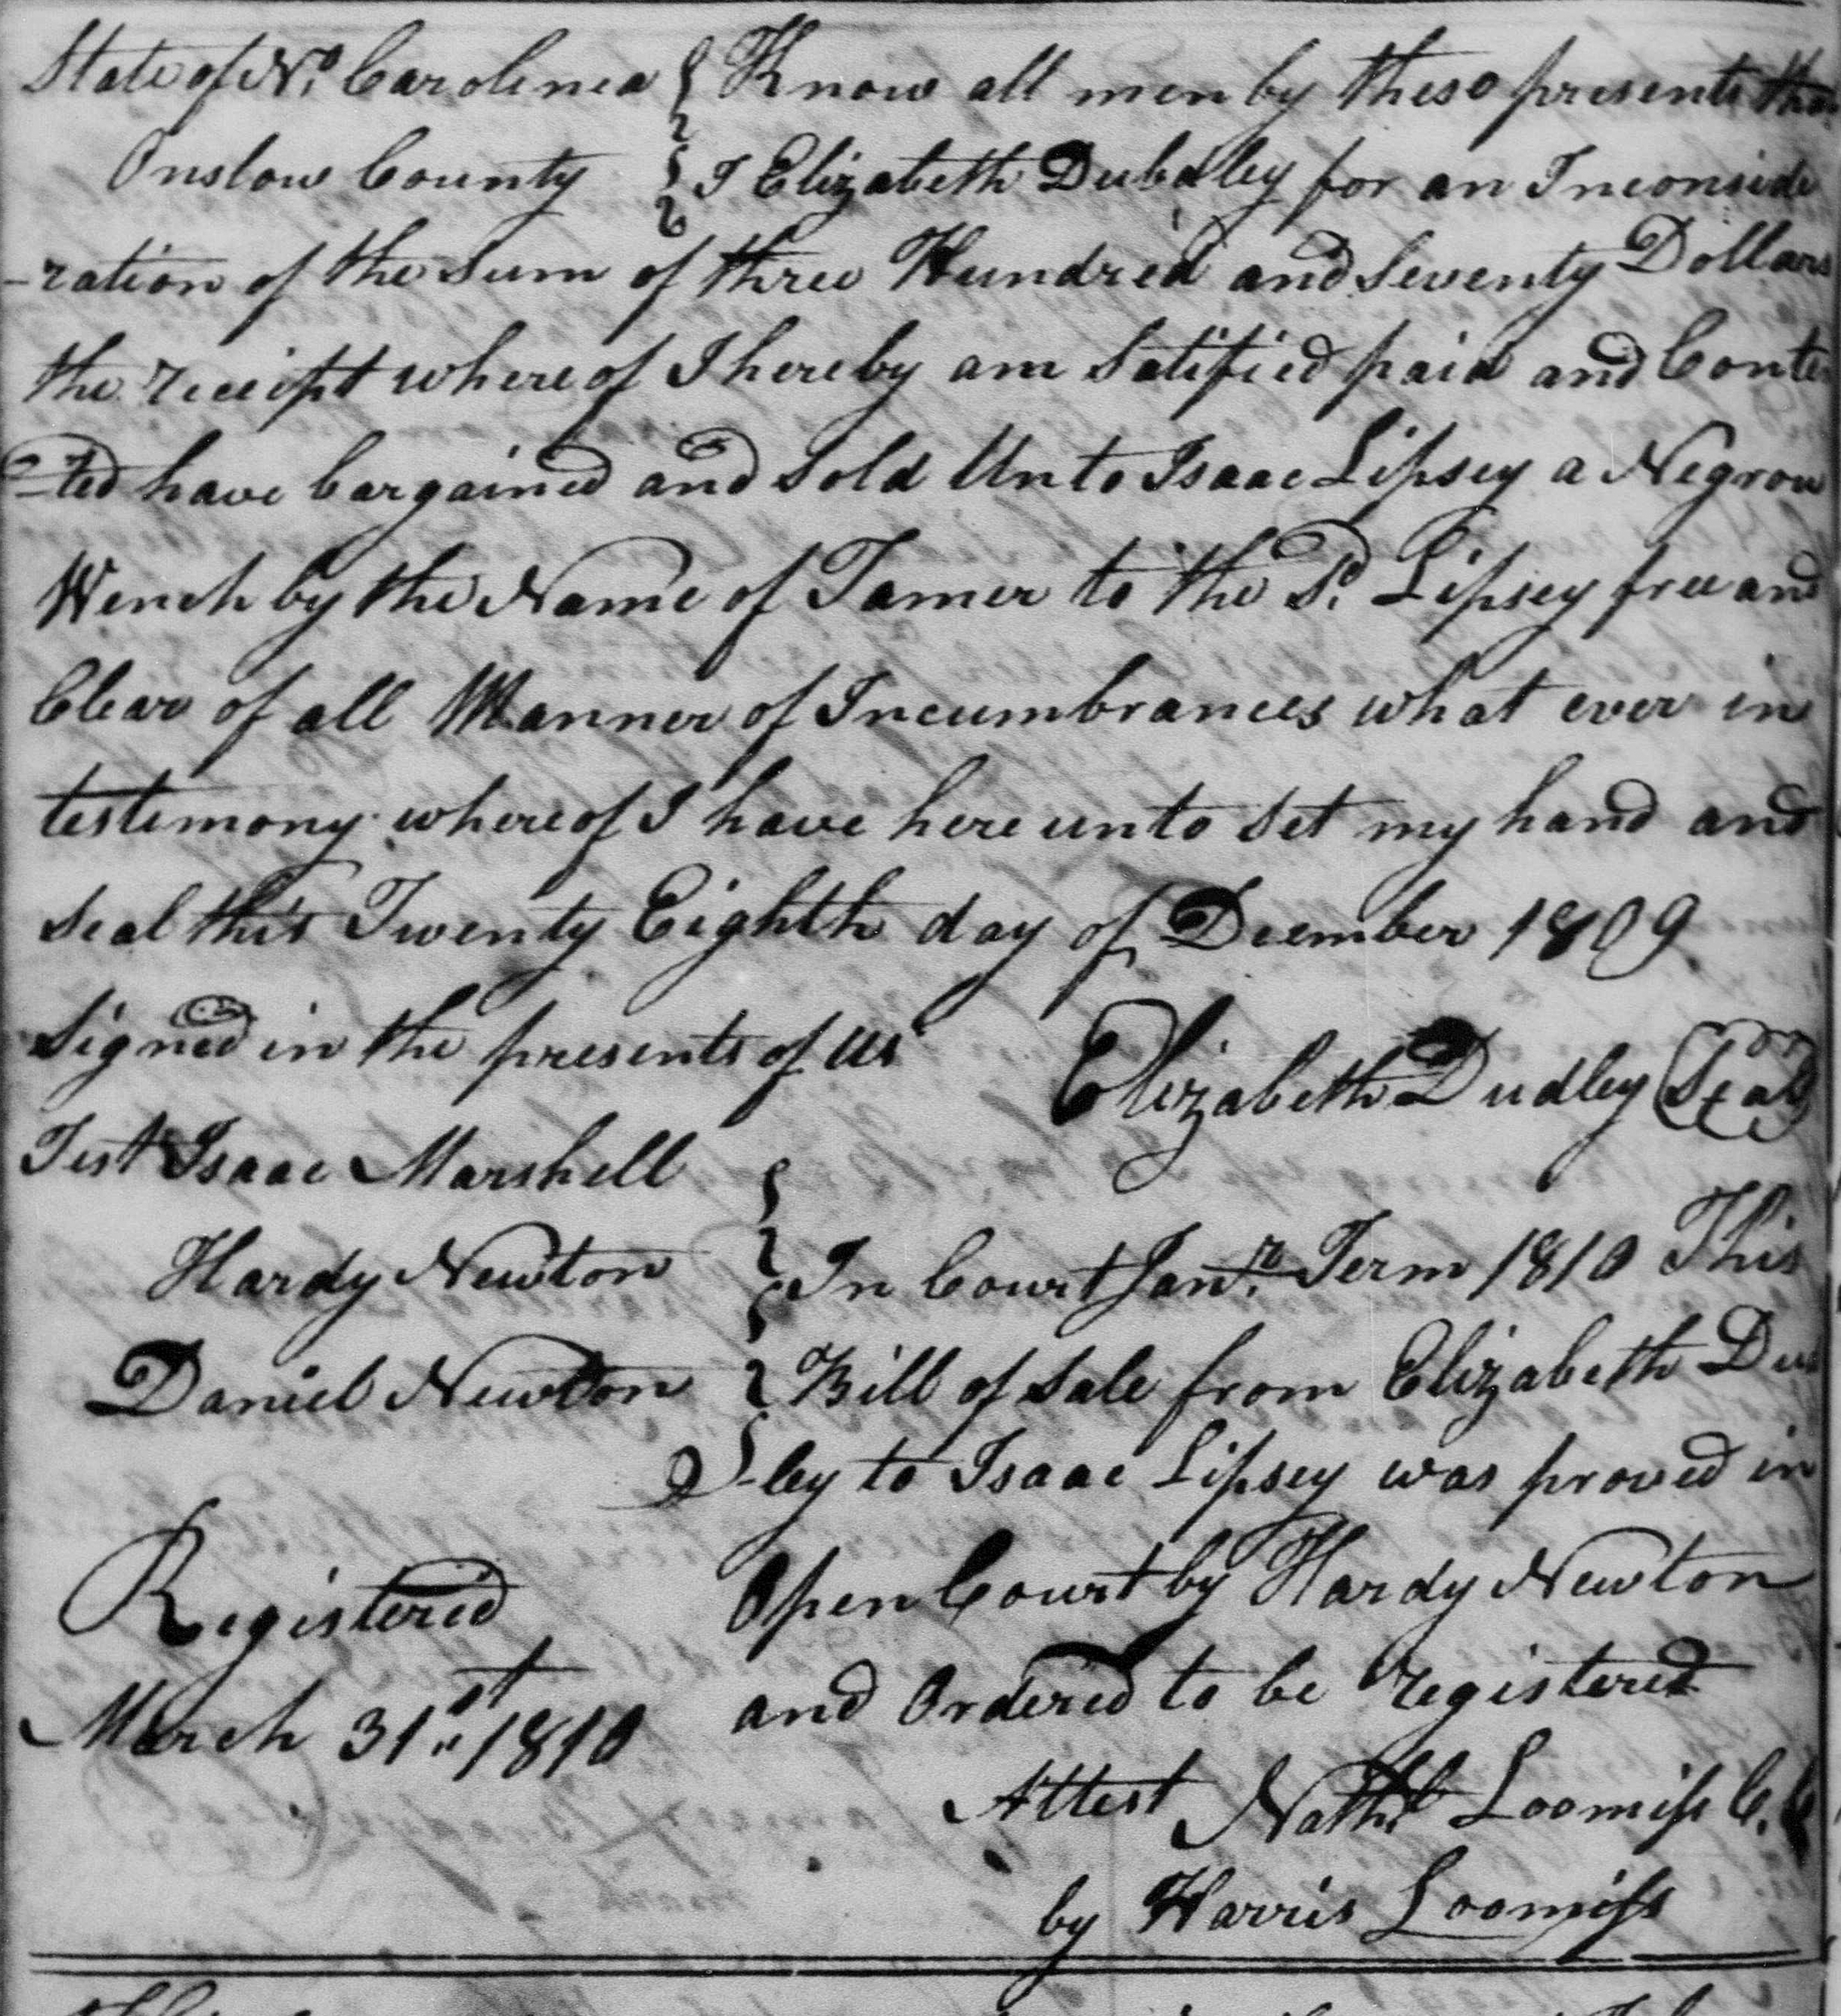 State of No. Carolinea Know all men by these presents that
Onslow County I Elizabeth Dubdley for an Inconside
-ration of the Sum of three Hundred and Seventy Dollars
the receipt where of I hereby am Satified paid and Conte
-ted have bargained and Sold Unto Isaac Lipsey a Negrow
Wench by the Name of Tamer to the Sd. Lipsey free and
Clear of all Manner of Incumbrances what ever in
testimony where of I have here unto Set my hand and
Seal this Twenty Eighth day of Deember 1809
Signed in the presents of us
Elizabeth Dudley Seal
Test Isaac Marshell
Hardy Newton
Daniel Newton
In Court Janr. Term 1810 This
Bill of Sale from Elizabeth Dud
-ley to Isaac Lipsey was proved in
Open Court by Hardy Newton
and Ordered to be registered
Registered
March 31st 1810
Attest Nathl Loomiss C.C
by Harris Loomiss